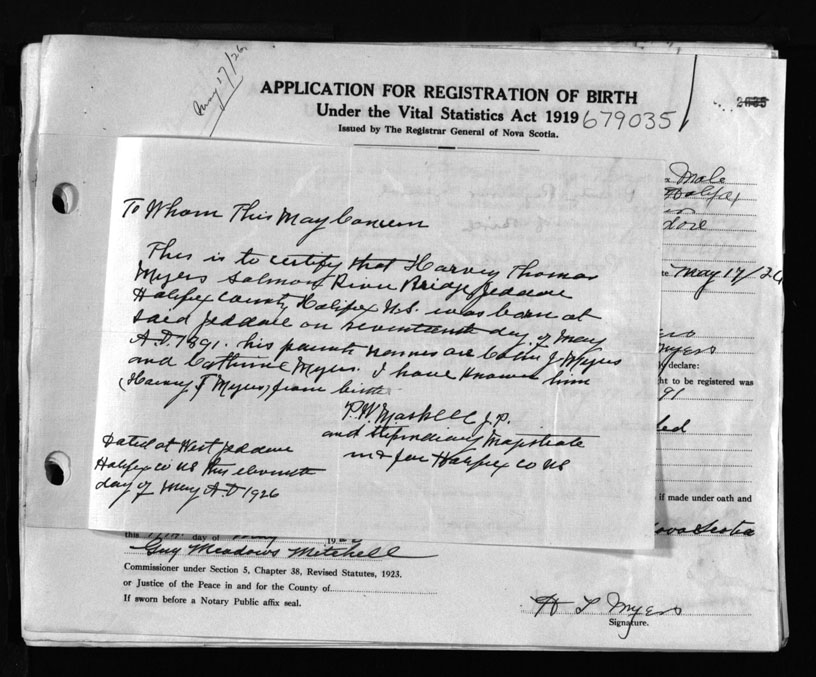 May 17/26
APPLICATION FOR REGISTRATION OF BIRTH
Under the Vital Statistics Act 1919
679035
Issued by The Registrar General of Nova Scotia.
Male
Halifax
dore
May 17/26
To Whom This May Concern
This is to certify that Harvey Thomas
Myers Salmon River Bridge Jeddore
Halifax County Halifax N.S. was born at
said Jeddore on seventeenth day of May
A.D. 1891. his parents names are J Myers
and Catherine Myers. I have known him
(Harvey T Myers) from birth
P. W. Maskell J.P.
and Stipendiary Magistrate
in & for Halifax Co NS
Dated at West Jeddore
Halifax Co NS this eleventh
day of May A.D 1926
ers
Myers
declare:
ht to be registered was
91
ded
if made under oath and
Nova Scotia
this day of 19
Guy Meadows Mitchell
Commissioner under Section 5, Chapter 38, Revised Statutes, 1923.
or Justice of the Peace in and for the County of
If sworn before a Notary Public affix seal.
H T Myers
Signature.